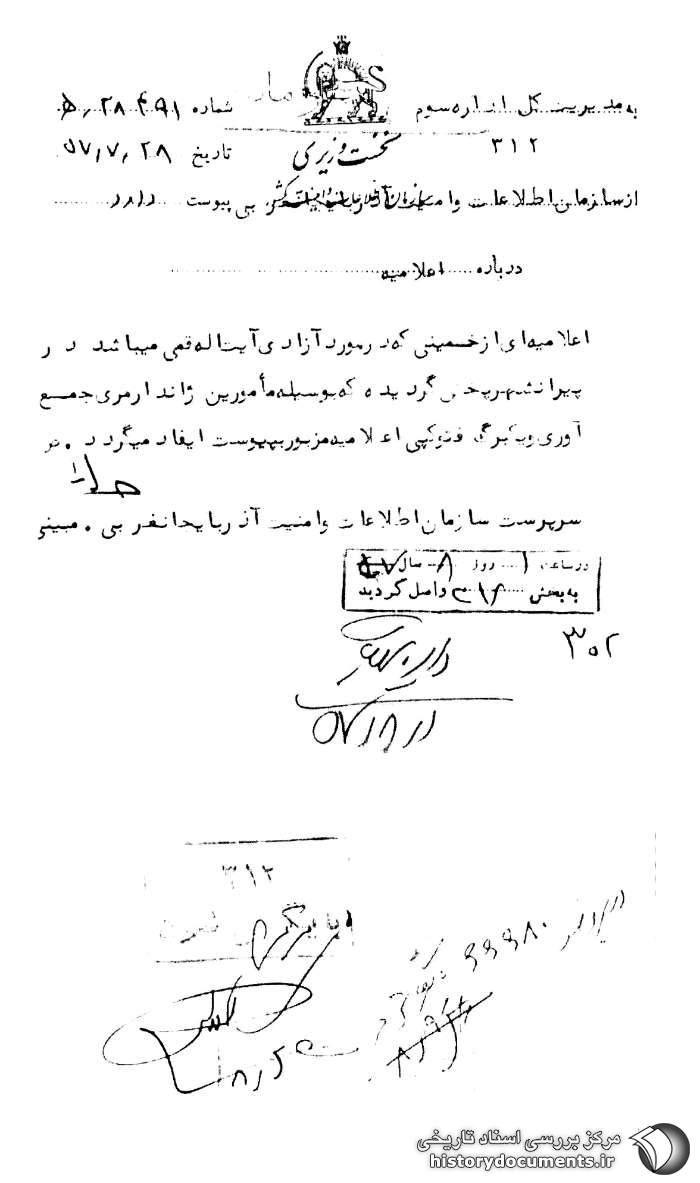 به مدیریت کل اداره سوم
۳۱۲
شماره ۲۸۴۹۱/ه
نخست وزیری
تاریخ ۵۷/۷/۲۸
از سازمان اطلاعات و امنیت آذربایجانغربی پیوست دارد
درباره اعلامیه
اعلامیه‌ای از خمینی که در مورد آزادی آیت‌اله قمی میباشد در
پیرانشهر پخش گردیده که بوسیله مأمورین ژاندارمری جمع
آوری و یکبرگ فتوکپی اعلامیه مزبور بپیوست ایفاد میگردد.
سرپرست سازمان اطلاعات و امنیت آذربایجانغربی. مبینی
در ساعت ۱ روز ۸ سال ۵۷
به بخش ۳۱۲ واصل گردید
۳۰۲
۵۷/۸/۱
۳۱۲
بایگانی شود
۸/۲
مرکز بررسی اسناد تاریخی
historydocuments.ir